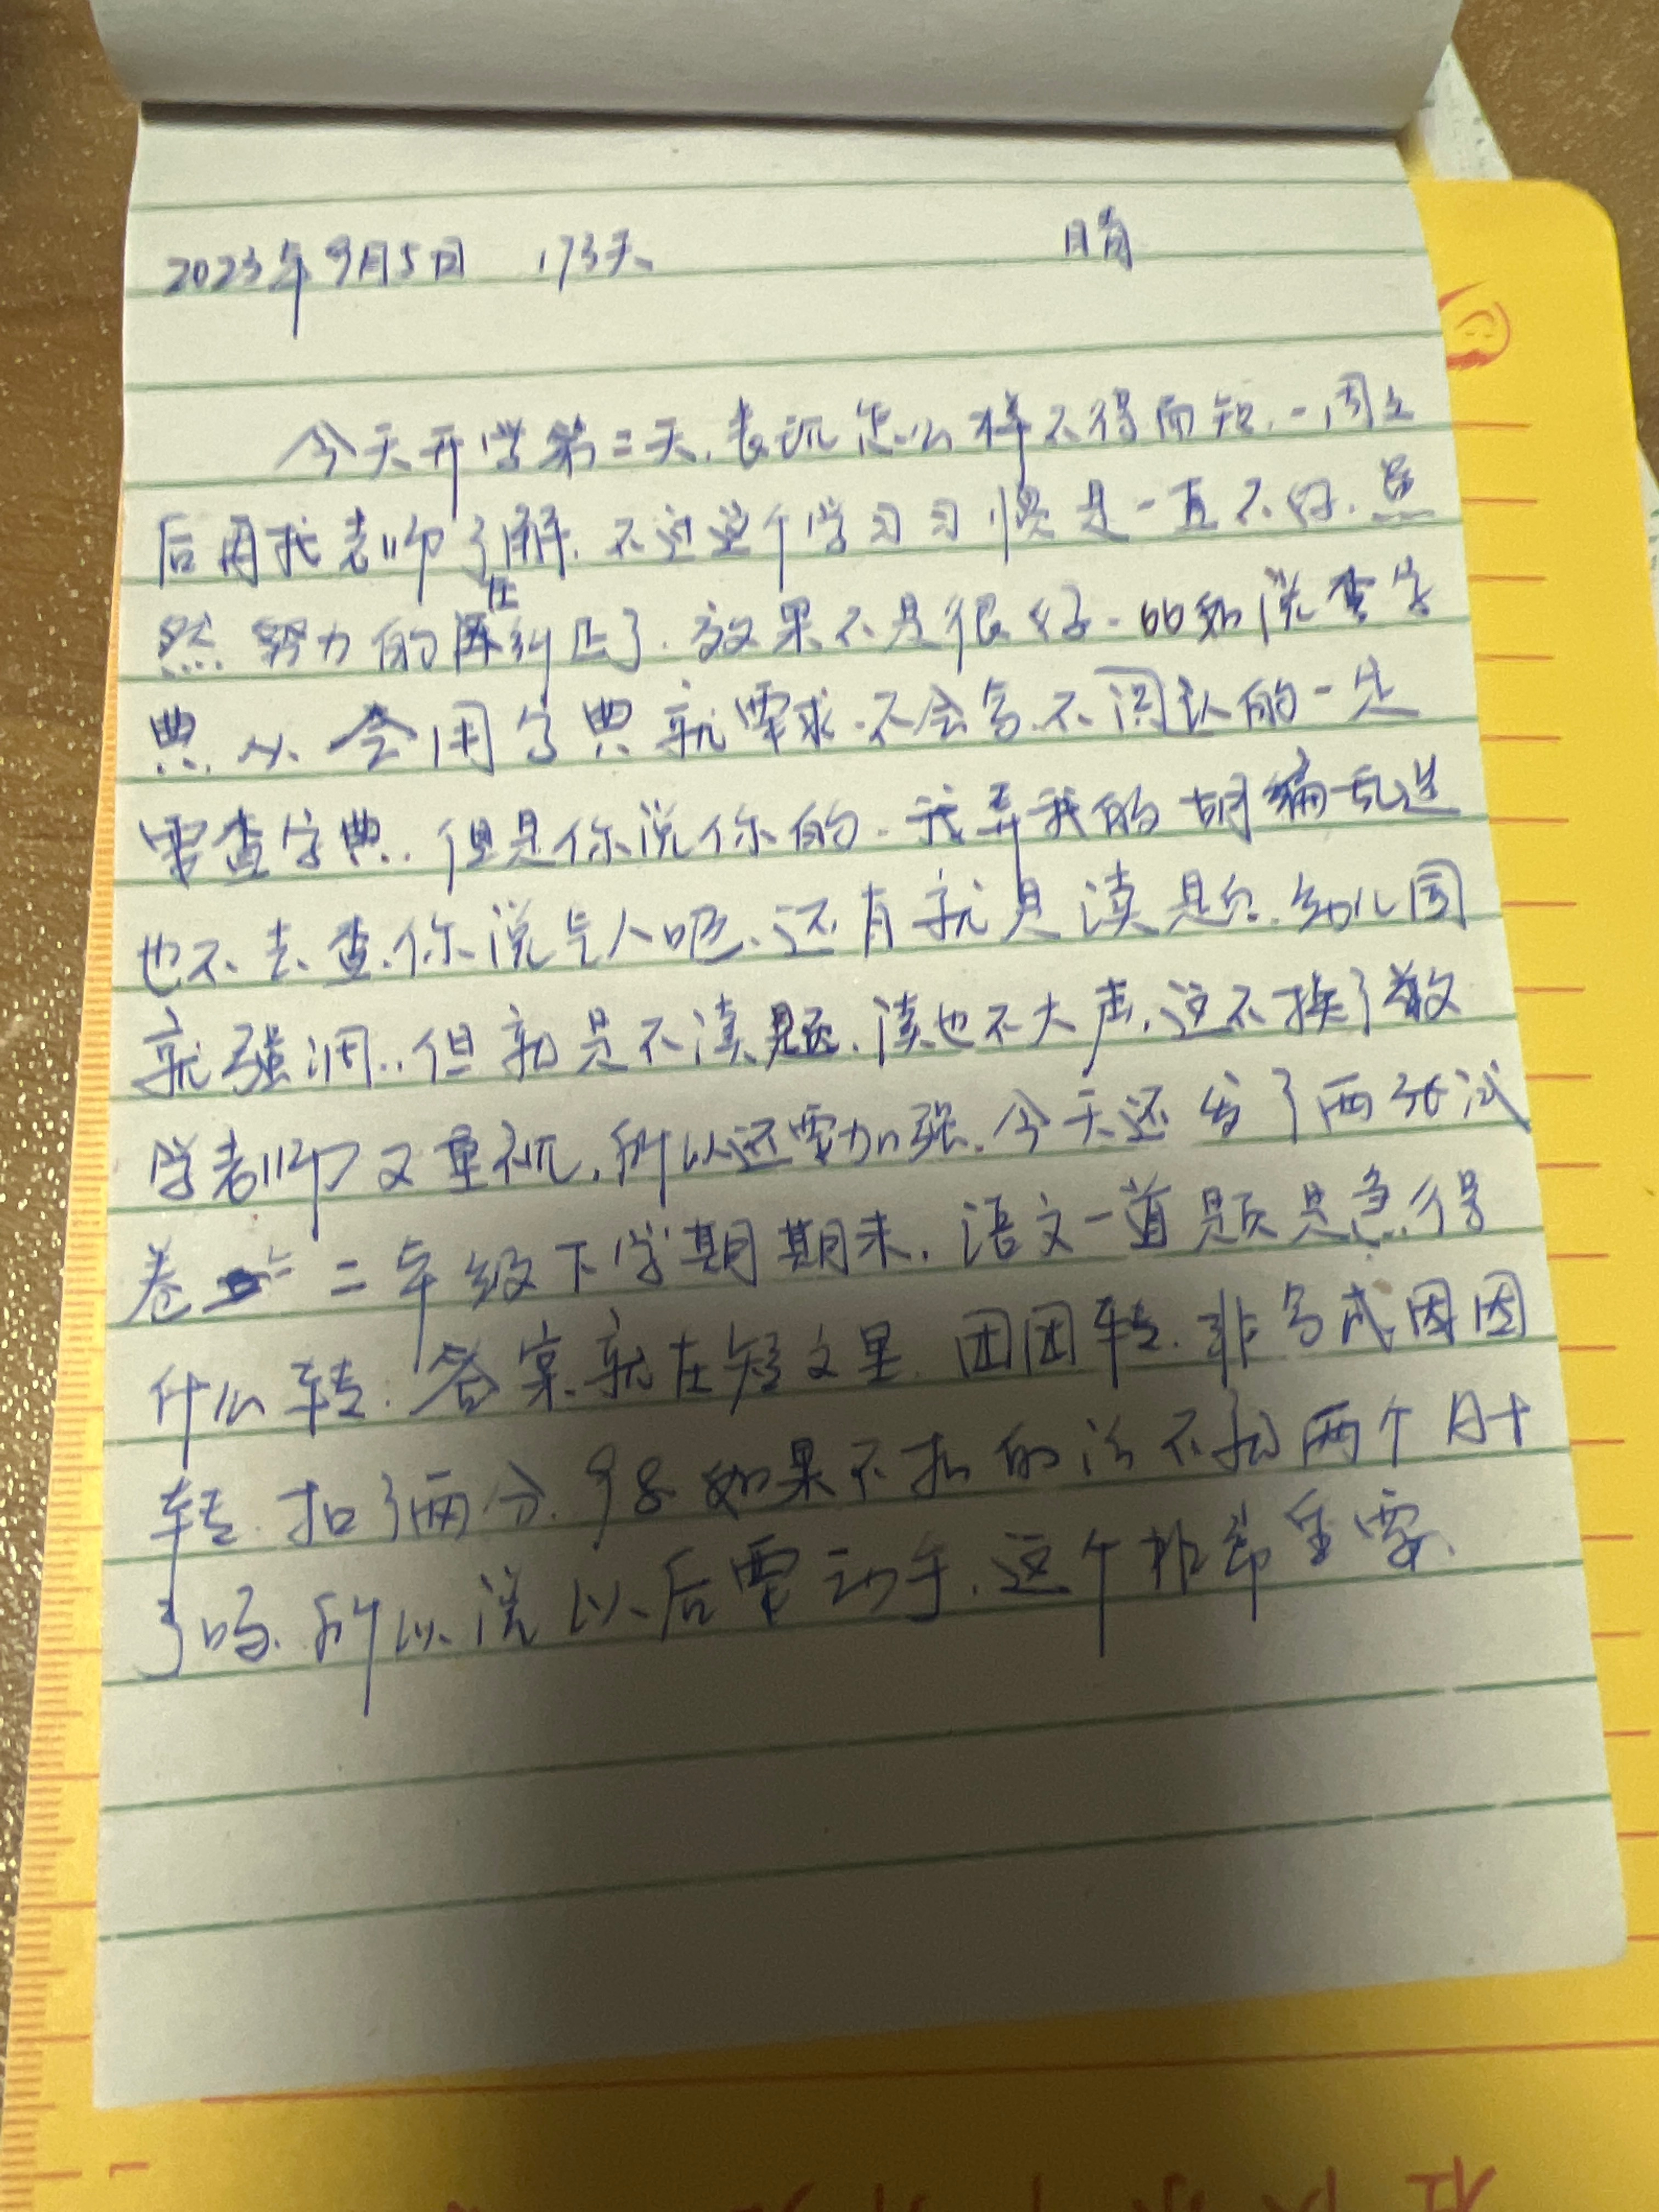 2023年9月5日 173天 晴
今天开学第二天.表现怎么样不得而知.一周之
后再找老师了解.不过这个学习习惯是一直不好.虽
然努力的在纠正了.效果不是很好.比如说查字
典.从会用字典就要求.不会写.不确认的一定
要查字典.但是你说你的.我弄我的胡编乱造
也不去查.你说气人吧.还有就是读题.幼儿园
就强调..但就是不读题.读也不大声.这不换了数
学老师又重视.所以还要加强.今天还发了两张试
卷 二年级下学期期末.语文一道题是急得
什么转.答案就在短文里.团团转.非写成因因
转.扣了两分.98如果不扣的话不扣两个A+
了吗.所以说以后要动手.这个非常重要.